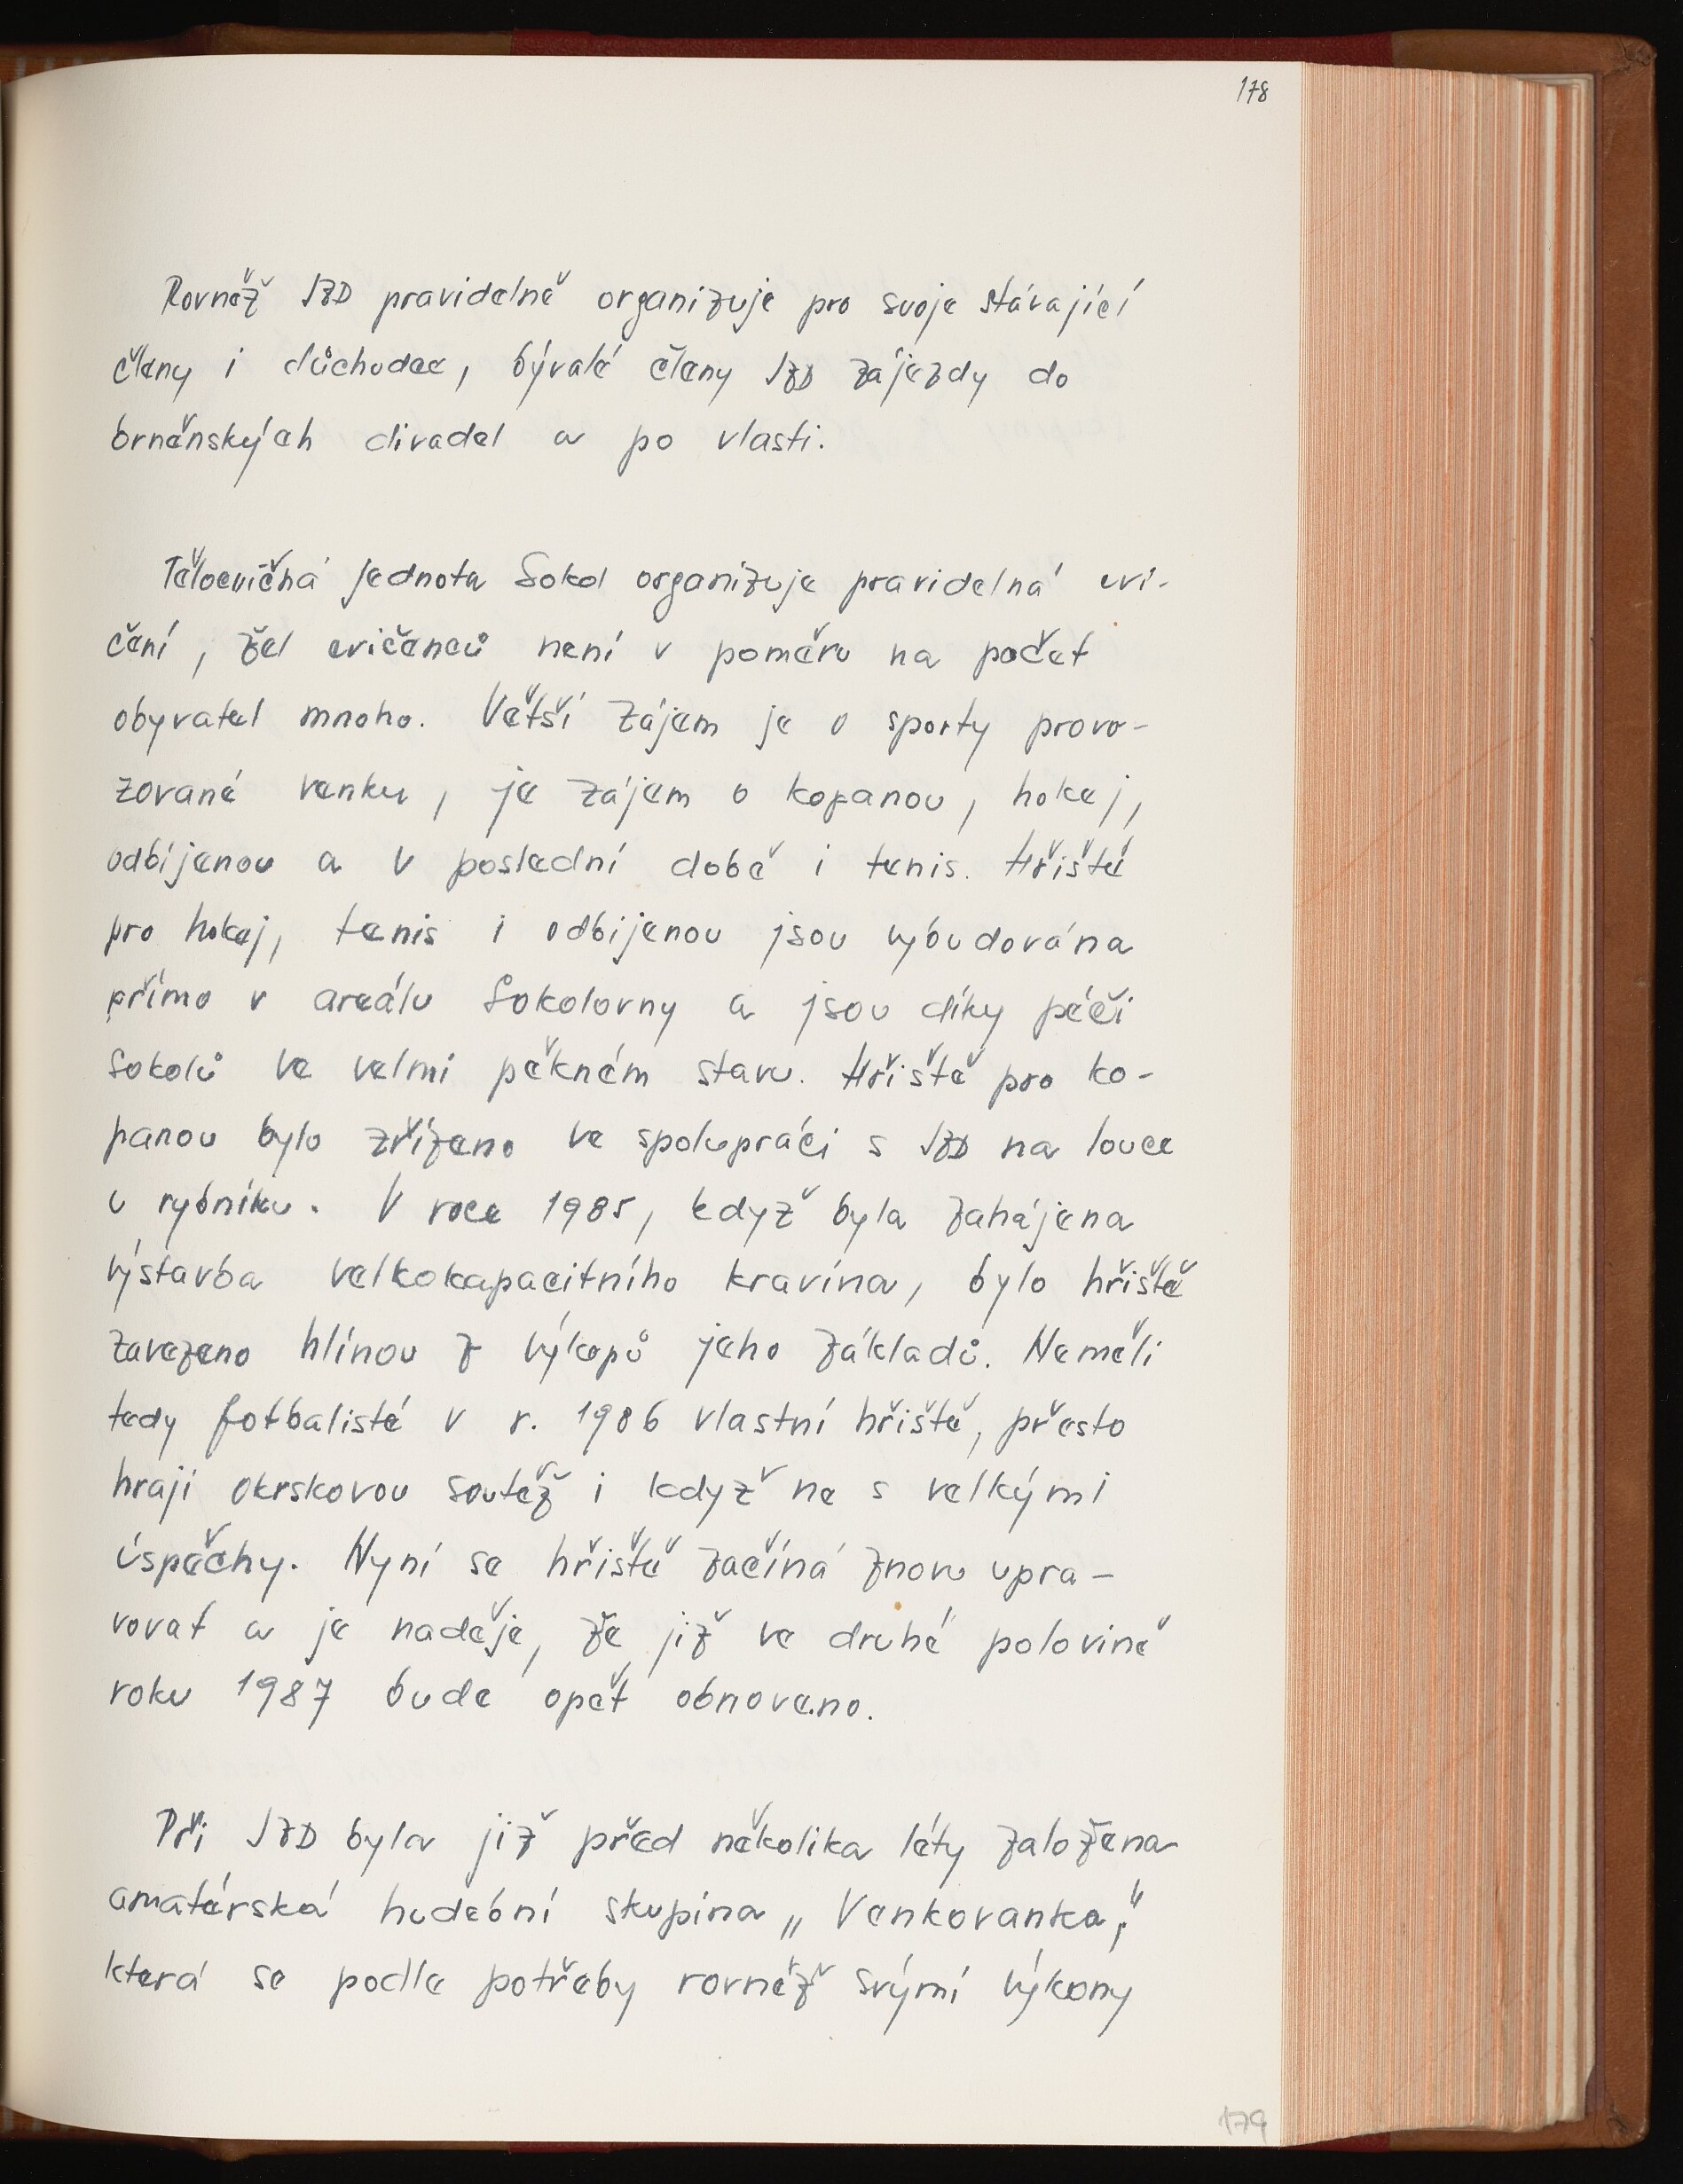 178
Rovněž JZD pravidelně organizuje pro svoje stávající
členy i důchodce, bývalé členy JZD zájezdy do
brněnských divadel a po vlasti.
Tělocvičná jednota Sokol organizuje pravidelná cvi-
čení, žel cvičenců není v poměru na počet
obyvatel mnoho. Větší zájem je o sporty provo-
zované venku, je zájem o kopanou, hokej,
odbíjenou a v poslední době i tenis. Hřiště
pro hokej, tenis i odbíjenou jsou vybudována
přímo v areálu Sokolovny a jsou díky péči
Sokolů ve velmi pěkném stavu. Hřiště pro ko-
panou bylo zřízeno ve spolupráci s JZD na louce
u rybníku. V roce 1985, když byla zahájena
výstavba velkokapacitního kravína, bylo hřiště
zavezeno hlínou z výkopů jeho základů. Neměli
tedy fotbalisté v r. 1986 vlastní hřiště, přesto
hrají okrskovou soutěž i když ne s velkými
úspěchy. Nyní se hřiště začíná znovu upra-
vovat a je naděje, že již ve druhé polovině
roku 1987 bude opět obnoveno.
Při JZD byla již před několika léty založena
amatérská hudební skupina „Venkovanka,"
která se podle potřeby rovněž svými výkony
179